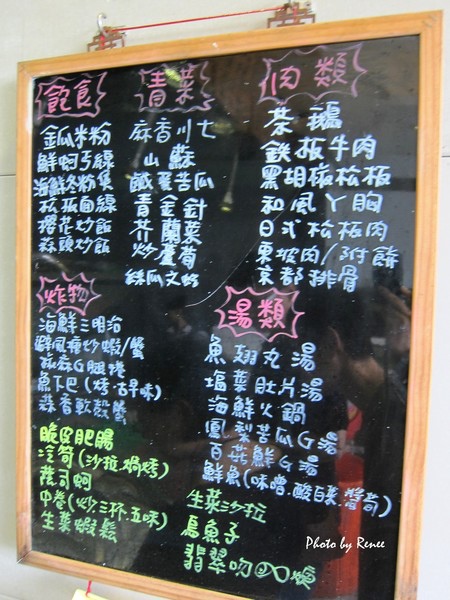 飽食
金瓜米粉
鮮蚵多線
海鮮冬粉煲
松板面線
櫻花炒飯
蒜頭炒飯
青菜
麻香川七
山蘇
鹹蛋苦瓜
青金針
芥蘭菜
炒蘆筍
絲瓜文蛤
肉類
茶鵝
鉄板牛肉
黑胡椒松板
和風丫胸
日式松板肉
東坡肉/附餅
京都排骨
炸物
海鮮三明治
避風塘炒蝦/蟹
麻G腿捲
魚下巴(烤.古早味)
蒜香軟殼蟹
脆皮肥腸
冷筍(沙拉.焗烤)
蔭司蚵
中卷(炒.三杯.五味)
生菜蝦鬆
湯類
魚翅丸湯
塩菜肚片湯
海鮮火鍋
鳳梨苦瓜G湯
百菇鮮G湯
鮮魚(味噌.酸白菜.醬筍)
生菜沙拉
烏魚子
翡翠吻
Photo by Renee